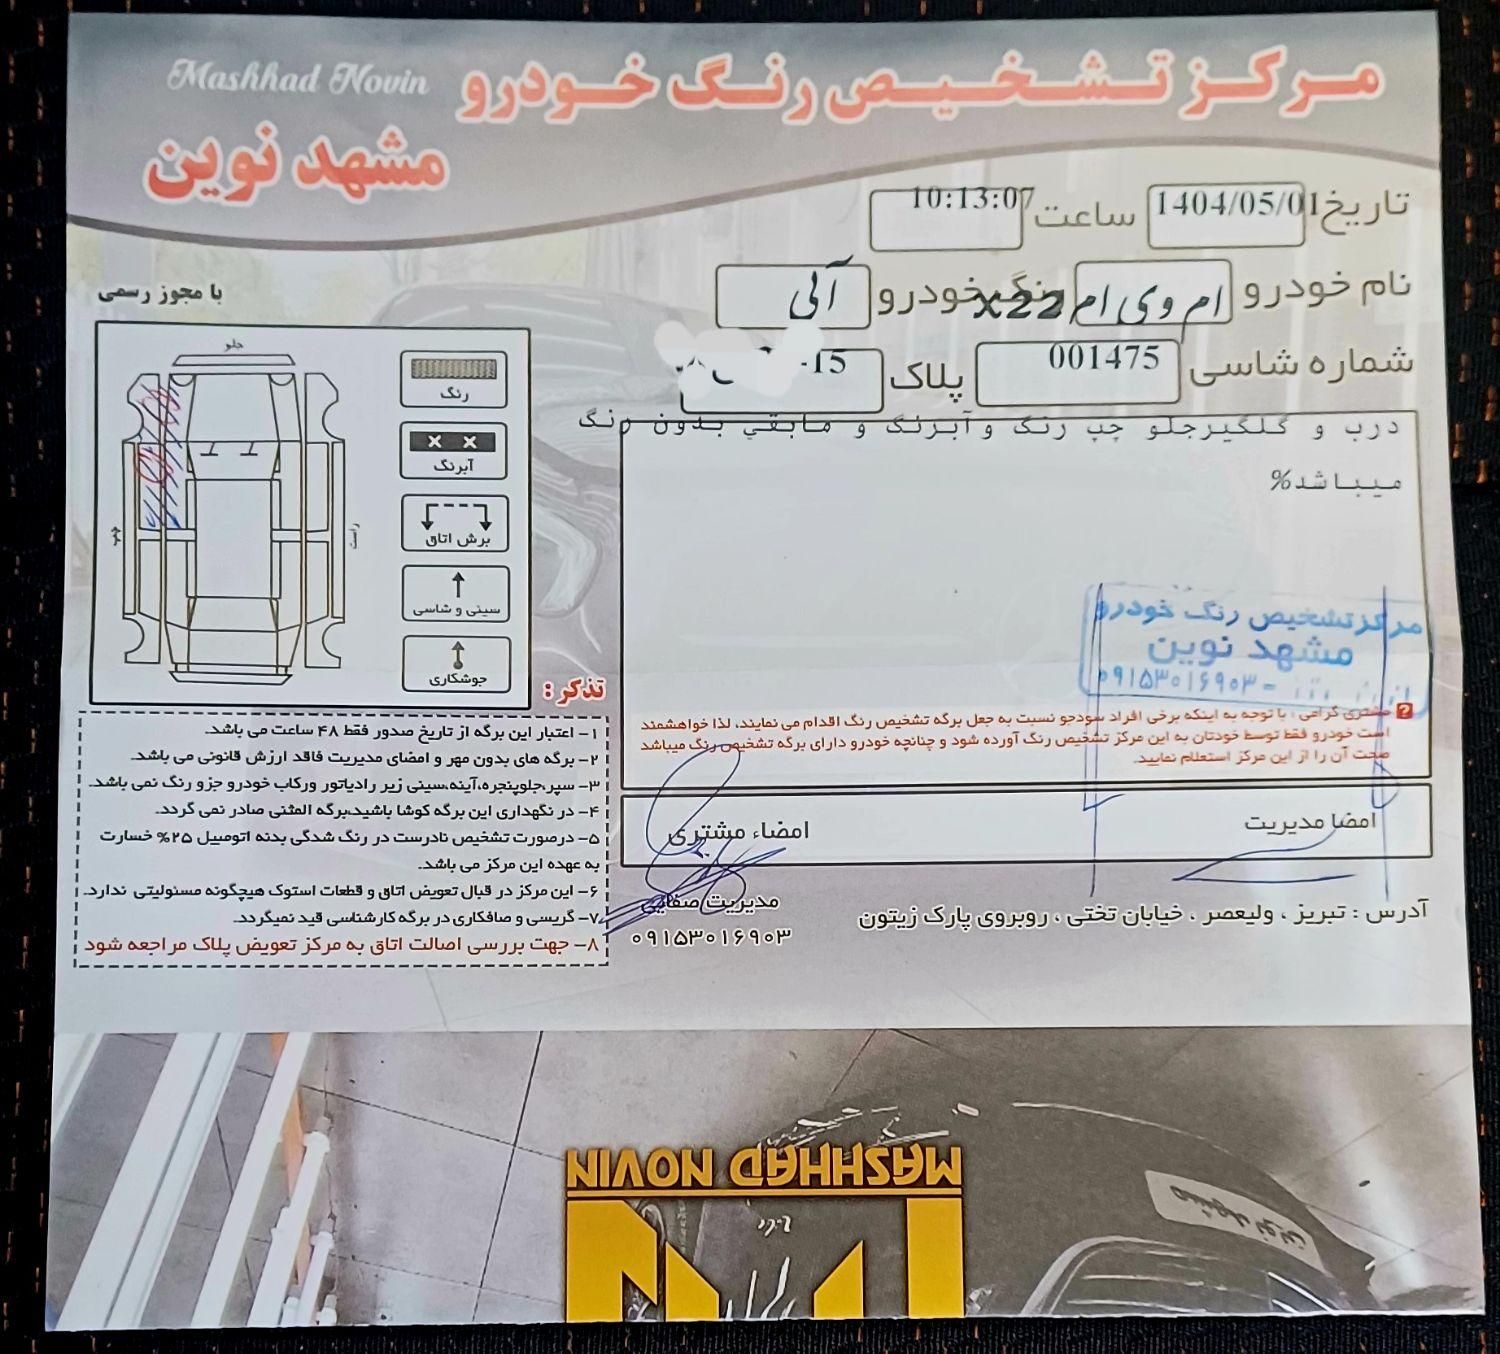 مرکز تشخیص رنگ خودرو
Mashhad Novin
مشهد نوین
تاریخ 1404/05/01 ساعت 10:13:07
نام خودرو ام وی ام X22 رنگ خودرو آلبی
شماره شاسی 001475 پلاک 15-
با مجوز رسمی
جلو
چپ
راست
رنگ
آبرنگ
برش اتاق
سینی و شاسی
جوشکاری
درب و گلگیرجلو چپ رنگ وآبرنگ و مابقی بدون رنگ
میباشد%
مرکز تشخیص رنگ خودرو
مشهد نوین
۰۹۱۵۳۰۱۶۹۰۳ -
مشتری گرامی ؛ با توجه به اینکه برخی افراد سودجو نسبت به جعل برگه تشخیص رنگ اقدام می نمایند، لذا خواهشمند
است خودرو فقط توسط خودتان به این مرکز تشخیص رنگ آورده شود و چنانچه خودرو دارای برگه تشخیص رنگ میباشد
صحت آن را از این مرکز استعلام نمایید.
امضا مدیریت
امضاء مشتری
تذکر :
۱- اعتبار این برگه از تاریخ صدور فقط ۴۸ ساعت می باشد.
۲- برگه های بدون مهر و امضای مدیریت فاقد ارزش قانونی می باشد.
۳- سپر،جلوپنجره،آینه،سینی زیر رادیاتور ورکاب خودرو جزو رنگ نمی باشد.
۴- در نگهداری این برگه کوشا باشید،برگه المثنی صادر نمی گردد.
۵- درصورت تشخیص نادرست در رنگ شدگی بدنه اتومبیل ۲۵% خسارت
به عهده این مرکز می باشد.
۶- این مرکز در قبال تعویض اتاق و قطعات استوک هیچگونه مسئولیتی ندارد.
۷- گریسی و صافکاری در برگه کارشناسی قید نمیگردد.
۸- جهت بررسی اصالت اتاق به مرکز تعویض پلاک مراجعه شود
مدیریت صفایی
۰۹۱۵۳۰۱۶۹۰۳
آدرس : تبریز ، ولیعصر ، خیابان تختی ، روبروی پارک زیتون
MASHHAD NOVIN
مشهد نوین